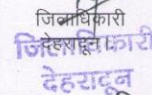 जिलाधिकारी
देहरादून।
जिलाधिकारी
देहरादून